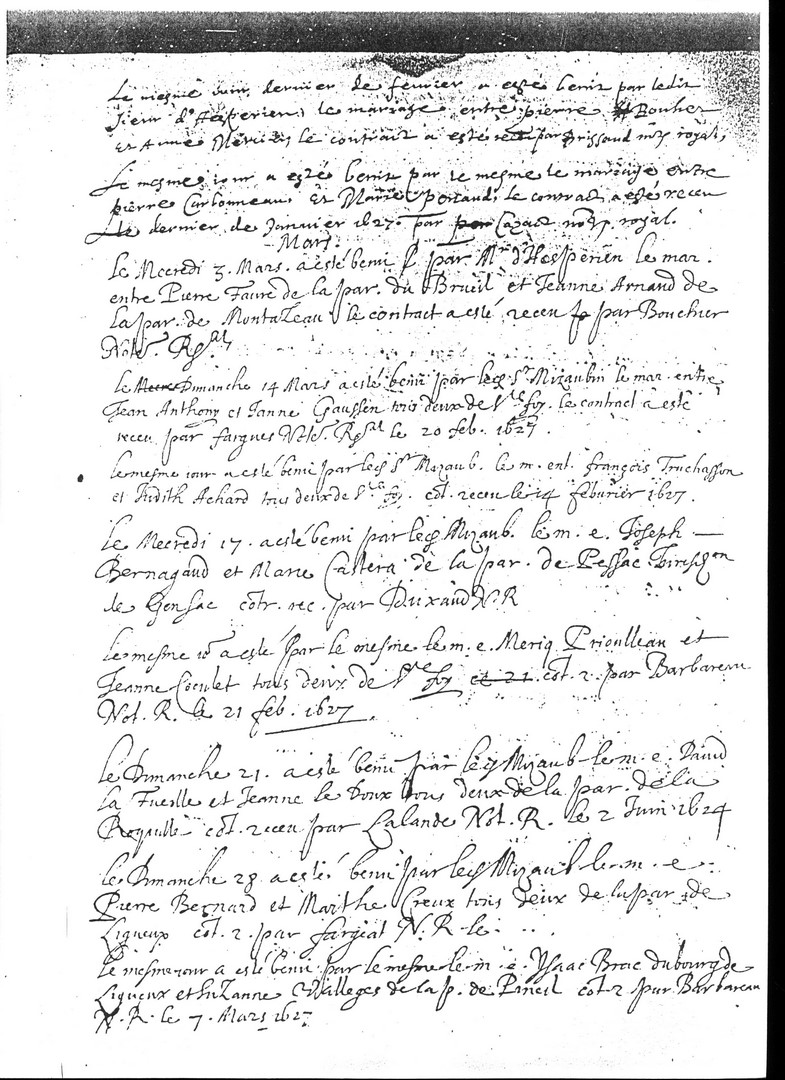 Le mesme jour dernier de fevrier a esté benit par ledit
sieur d'Hesperien le mariage entre pierre Bouher
et Anne Mercier le contrait a esté receu par Brissaud notre royal,
Le mesme jour a esté benit par le mesme le mariage entre
pierre Carbonneau et Marie le contract a esté receu
le dernier de Janvier 1627. par Capact notre royal.
Mars.
Le Mecredi 3. Mars. a esté beni par Mr d'Hesperien le mar.
entre Pierre Faure de la par. du Brueil et Jeanne Arnaud de
la par. de Montazeau le contract a esté receu par Bouchier
Notre. Royal
le Dimanche 14 Mars a esté beni par led. Sr Mizaubin le mar. entre
Jean Anthony et Janne Gaussen tous deux de Ste foy. le contract a esté
receu par fargues Notre. Royal le 20 feb. 1627.
le mesme jour a esté beni par led. Sr Mizaub. le m. ent. françois Truchasson
et Judith Achard tous deux de Ste foy. cot. receu le 14 februrier 1627.
le Mecredi 17. a esté beni par led. Mizaub. le m. e. Joseph
Bernagaud et Marie Castera de la par. de Pessac
de Gensac cotr. rec. par Duxaud N. R
le mesme jr a esté par le mesme le m. e. Meriq Prioulleau et
Jeanne Coculet tous deux de Ste foy et 21. cot. r. par Barbareau
Not. R. le 21 feb. 1627.
le Dimanche 21. a esté beni par led. Mizaub. le m. e. David
la Fueille et Jeanne le Doux tous deux de la par. de la
Roquille cot. receu par Lalande Not. R. le 2 Juin 1624
le Dimanche 28 a esté beni par led. Mizaub. le m. e.
Pierre Begnard et Marthe Creux tous deux de la par. de
Ligueux cot. r. par fargeat N. R. le . . .
le mesme jour a esté beni par le mesme le m. e. Ysaac Brac du bourg de
Ligueux et Suzanne Valleges de la p. de Pineil cot. r par Barbareau
N. R. le 7. Mars 1627